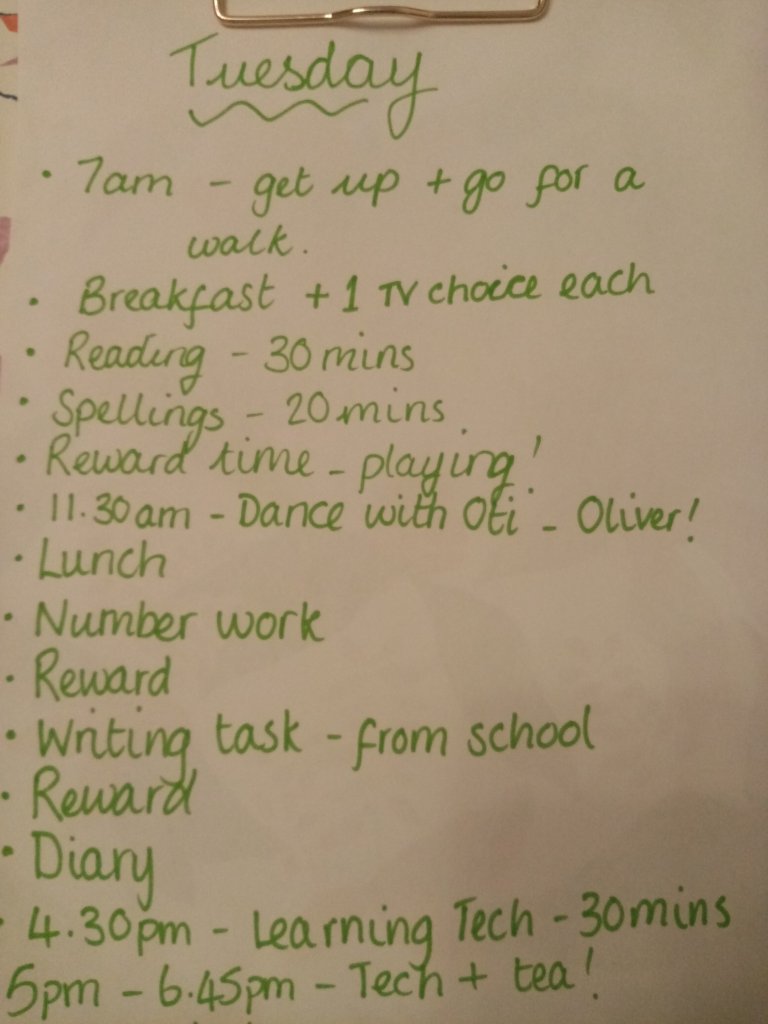 Tuesday
• 7am - get up + go for a
walk.
• Breakfast + 1 TV choice each
• Reading - 30 mins
• Spellings - 20 mins
• Reward time - playing!
• 11.30am - Dance with Oti - Oliver!
• Lunch
• Number work
• Reward
• Writing task - from school
• Reward
• Diary
• 4.30pm - Learning Tech - 30 mins
5pm - 6.45pm - Tech + tea!